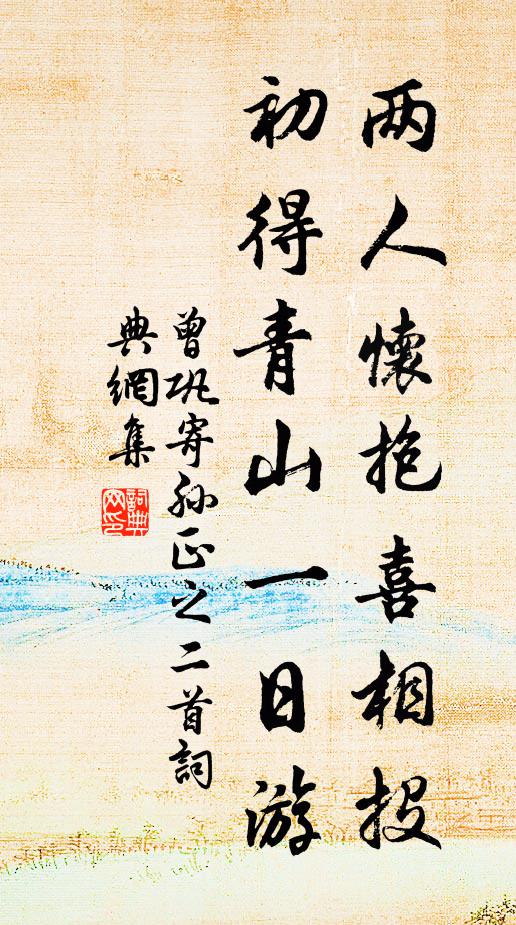 两人懷抱喜相投
初得青山一日游
曾巩寄孙正之二首詞
典網集
詞典
网印